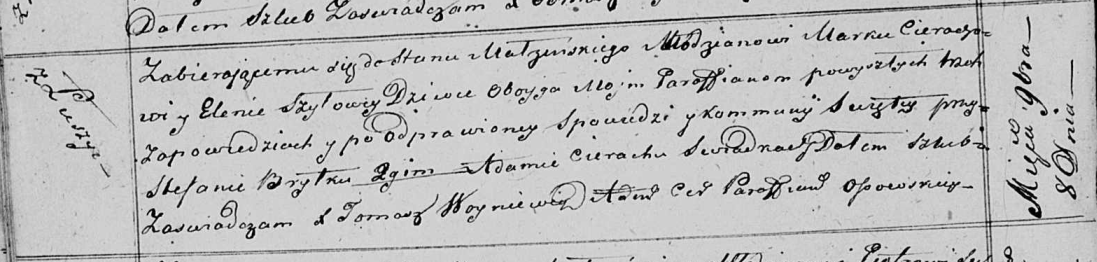 Dałem Szlub Zaswiadczam X
Z Puszcz-
Zabierającemu się do Stanu Małżeńskiego Młodzianowi Marku Cieracho-
wi y Elenie Szyłowny Dziewce Oboyga Moim Paraffianom powyszłych trzech
Zapowiedziach y po odprawioney Spowiedzi y Kommunij Swiętey przy-
Stefanie Brytku 2gim Adamie Cierachu Swiadkach Dałem Szlub-
Zaswiadczam X Tomasz Woyniewicz Paraffian
Miesca 9bra
8 Dnia